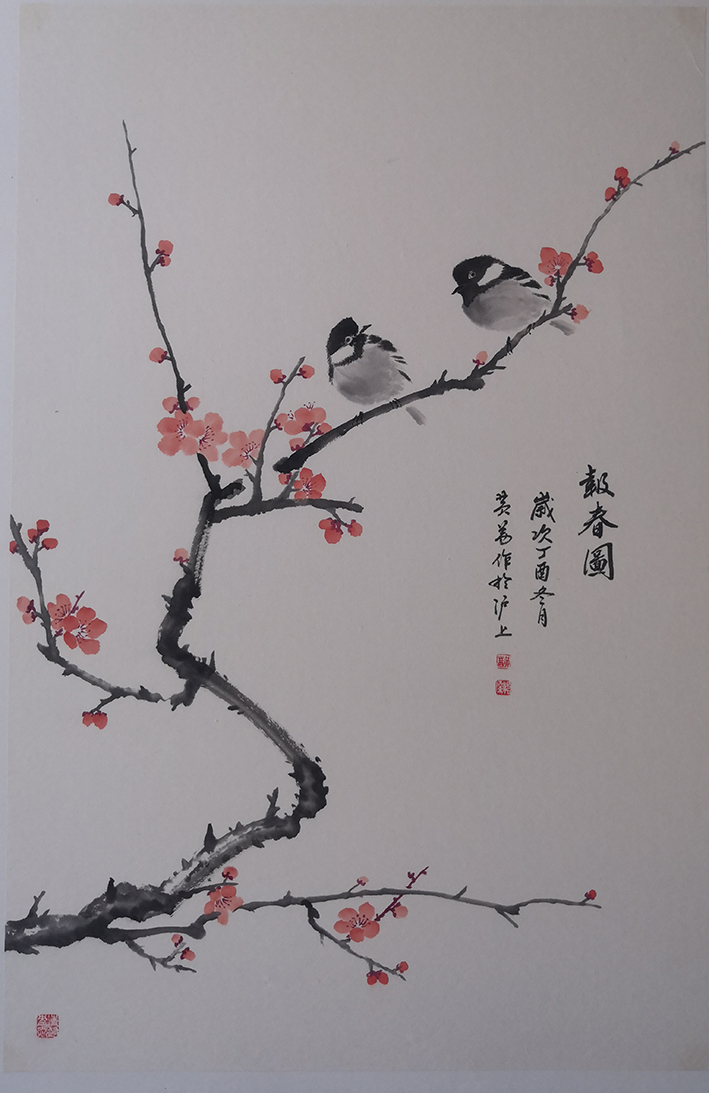 報春圖
歲次丁酉冬月
作於沪上